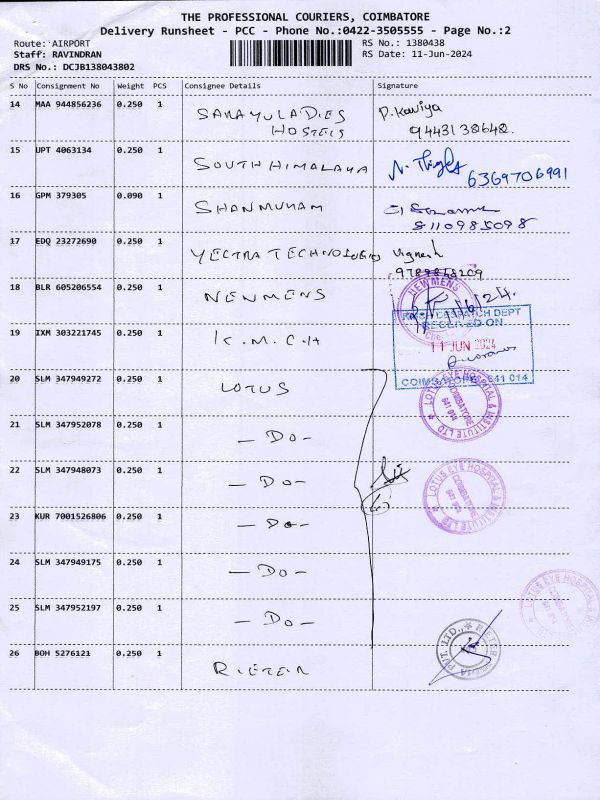 THE PROFESSIONAL COURIERS, COIMBATORE
Delivery Runsheet - PCC - Phone No.:0422-3505555 - Page No.:2
Route: AIRPORT RS No.: 1380438
Staff: RAVINDRAN RS Date: 11-Jun-2024
DRS No.: DCJB138043802
S No Consignment No Weight PCS Consignee Details Signature
14 MAA 944856236 0.250 1 SARAYU LADIES HOSTELS P. Kaviya
9443130640.
15 UPT 4063134 0.250 1 SOUTH HIMALAYA
6369706991
16 GPM 379305 0.090 1 SHANMUHAM
8110985098
17 EDQ 23272690 0.250 1 YECTRA TECHNOLOGIES Vignesh
18 BLR 605206554 0.250 1 NEWMENS
NEWMENS
DESPATCH DEPT
RECEIVED ON
19 IXM 303221745 0.250 1 K.M.C.H
11 JUN 2024
COIMBATORE 641 014
20 SLM 347949272 0.250 1 LOTUS
LOTUS EYE HOSPITAL & INSTITUTE LTD
COIMBATORE
641 014
21 SLM 347952078 0.250 1 - Do -
22 SLM 347948073 0.250 1 - Do -
LOTUS EYE HOSPITAL & INSTITUTE LTD
COIMBATORE
641 014
23 KUR 7001526806 0.250 1 - Do -
24 SLM 347949175 0.250 1 - Do -
LOTUS EYE HOSPITAL
25 SLM 347952197 0.250 1 - Do -
26 BOH 5276121 0.250 1 RIETER
RIETER INDIA PVT. LTD.,